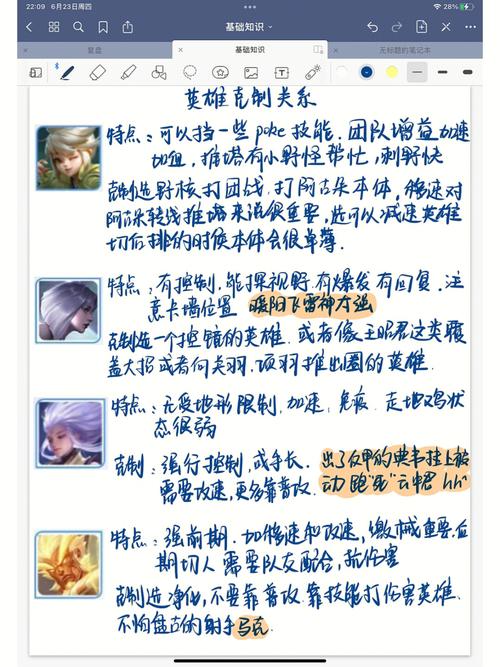 22:09 6月23日周四
28%
基础知识
复盘
基础知识
无标题的笔记本
英雄克制关系
特点：可以挡一些poke技能，团队增益加速
加血，推塔有小野怪帮忙，刺野快
克制：选野核打团战，打阿古朵本体，移速对
阿古朵转线推塔来说很重要，还可以减速英雄
切后排的时候本体会很单薄．
特点：有控制，能探视野，有爆发有回复．注
意卡墙位置 暖阳飞雷神太强
克制：选一个控镜的英雄．或者像王昭君这类覆
盖大招或者向关羽、项羽推出圈的英雄．
特点：无受地形限制，加速，免疫．走地鸡状
态很弱
克制：强行控制，或手长． 出了反甲的典韦挂上被
需要攻速，更多靠普攻． 动 跑"死"云中君 hh~
特点：强前期．加移速和攻速，缴械重要．后
期切人需要队友配合，抗伤害
克制选净化，不要靠普攻．靠技能打伤害英雄．
不怕盘古的射手马克